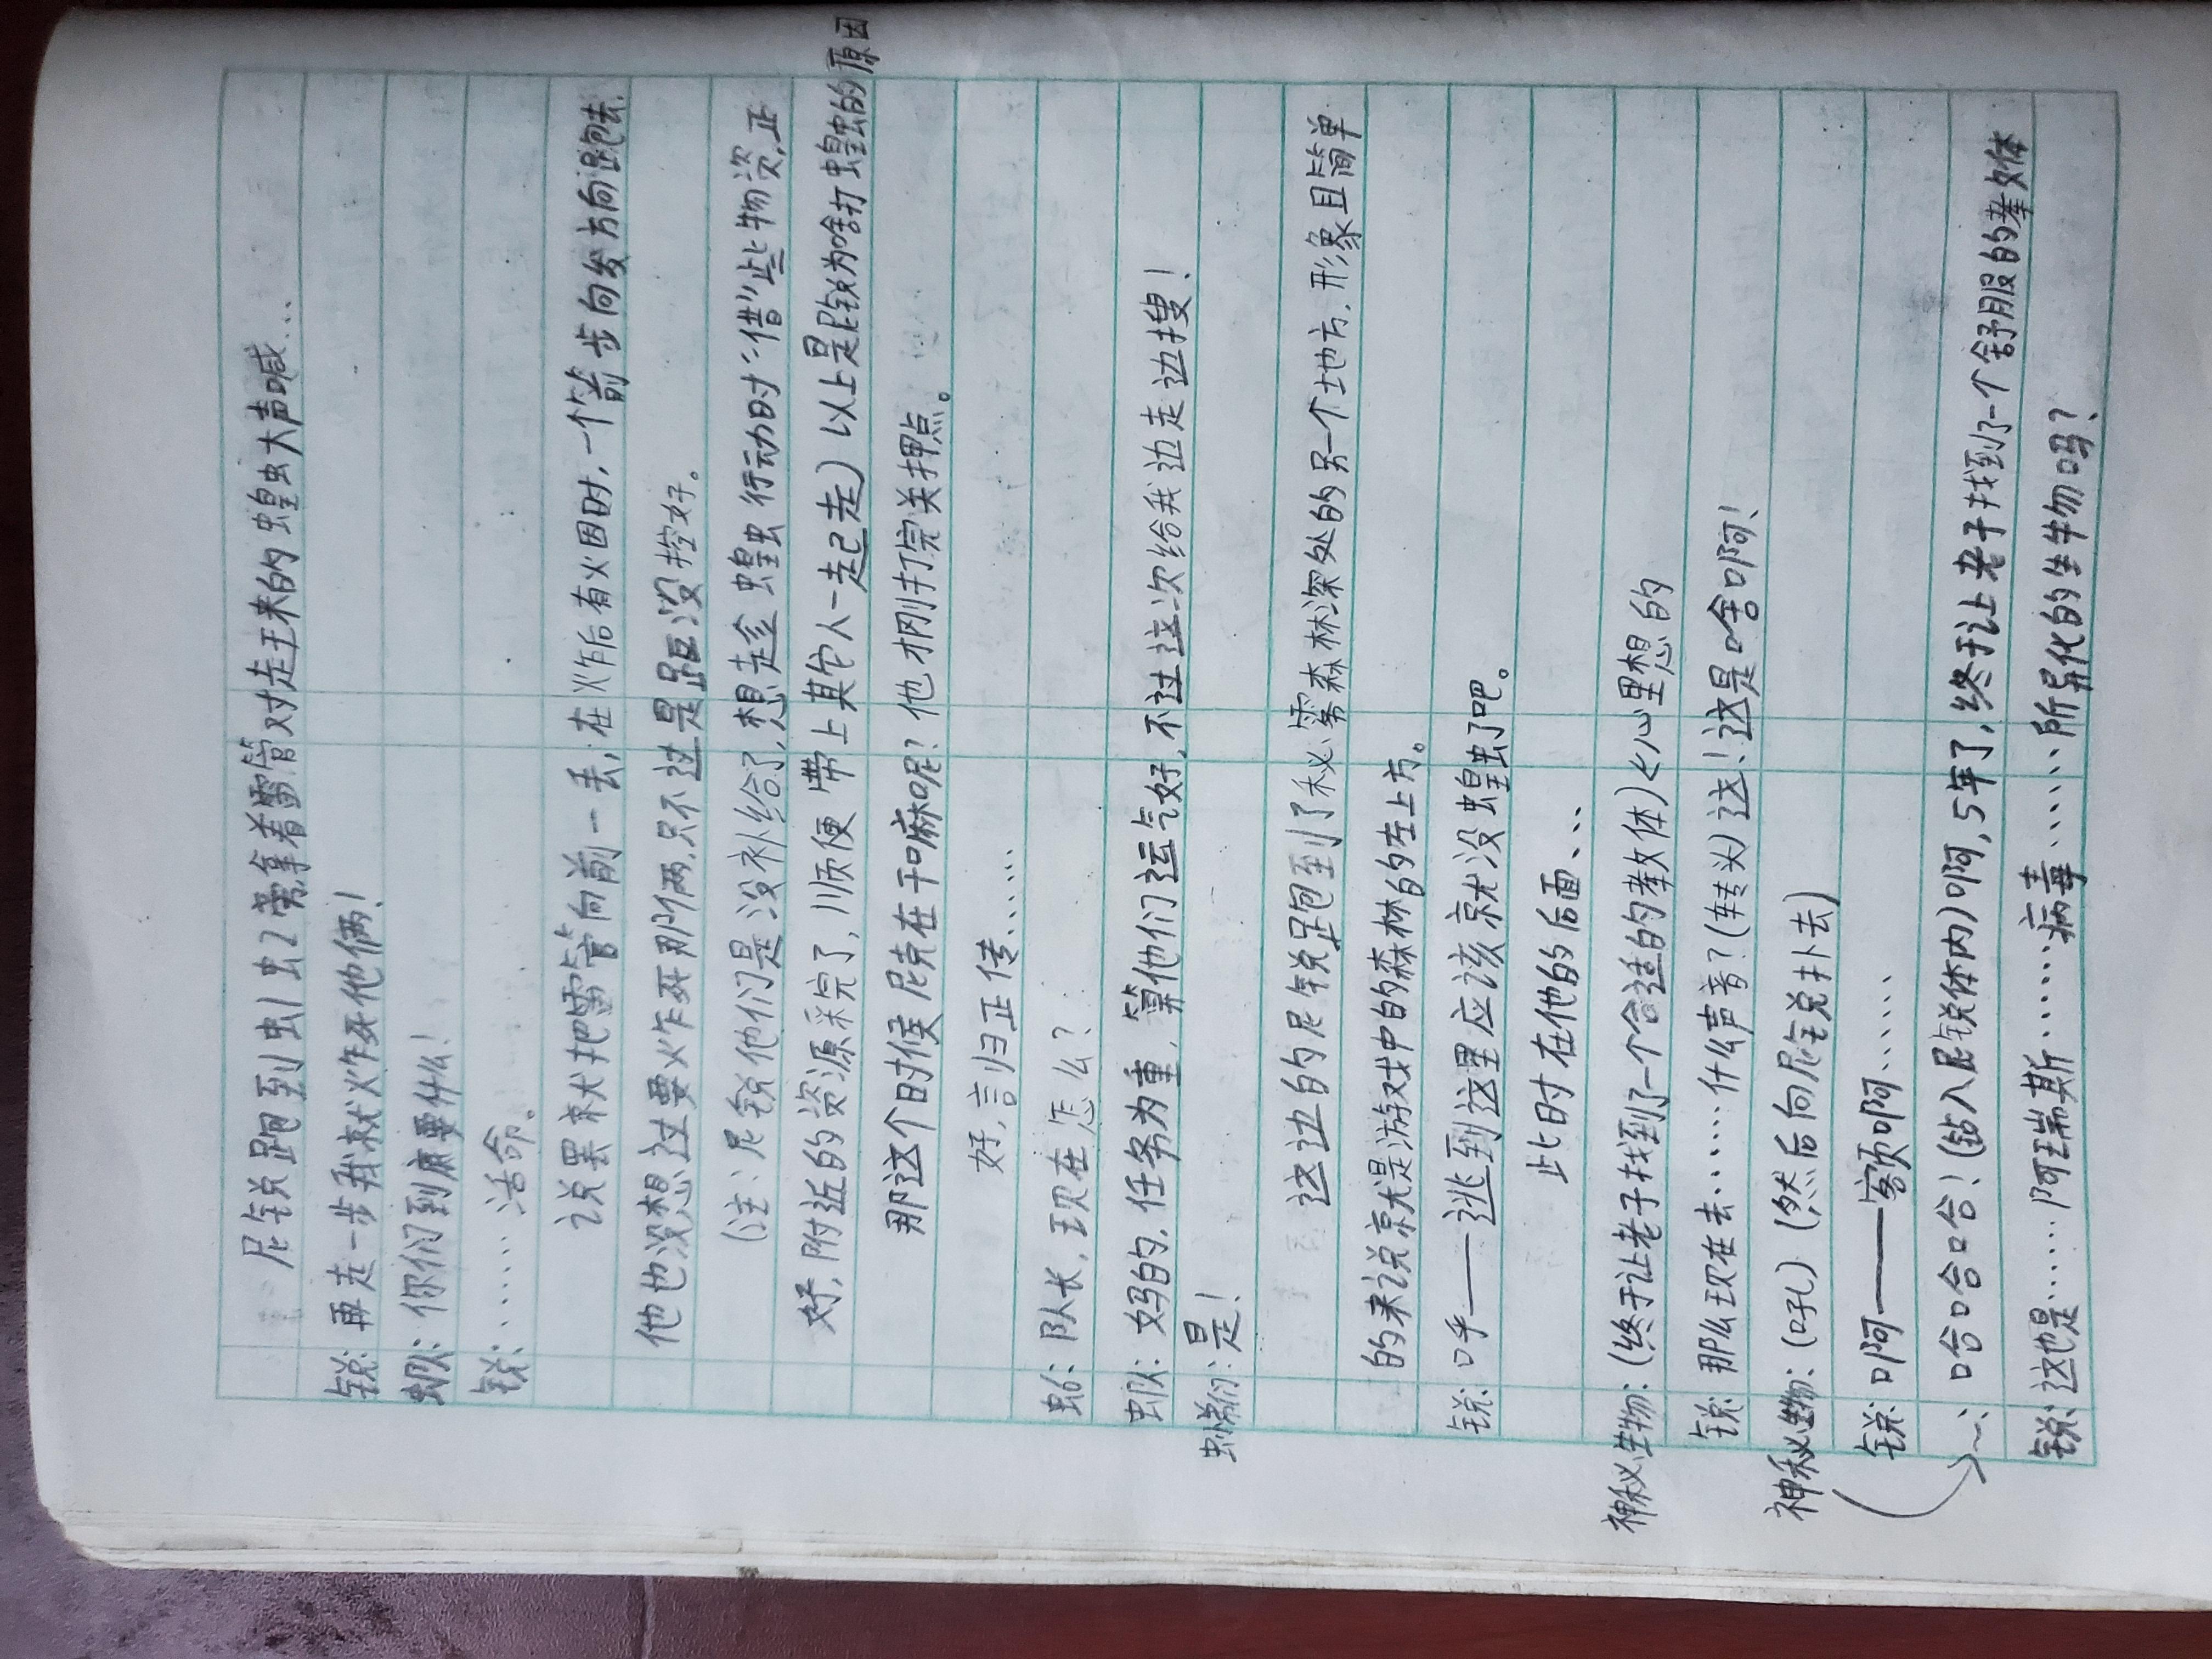 尼锐跑到虫1虫2旁拿着雷管对走来的蝗虫大声喊...
锐:再走一步我就炸死他俩!
虫队:你们到底要什么!
锐:......活命。
说罢就把雷管向前一丢,在炸后有火因时,一个箭步向发方向跑去.
他也没想过要炸死那俩,只不过是距没控好。
(注:尼锐他们是没补给了,想趁蝗虫行动时“借”些物资,正
好,附近的资源采完了,顺便带上其它人一起走)以上是尼锐为啥打蝗虫的原因
那这个时侯尼克在干嘛呢?他才刚打完关押点。
好,言归正传......
虫6:队长,现在怎么?
虫队:妈的,任务为重,算他们运气好,不过这次给我边走边搜!
虫常们:是!
这边的尼锐跑到了秘雾森林深处的另一个地方,形象且简单
的来说就是游戏中的森林的左上方。
锐:呼——逃到这里应该就没蝗虫了吧。
此时在他的后面...
神秘生物:(终于让老子找到了一个合适的孝文体)<心里想的
锐:那么现在去......什么声音?(转头)这!这是啥啊!
神秘生物:(吼)(然后向尼锐扑去)
锐:啊——额啊......
~:哈哈哈!(钻入尼锐体内)啊,5年了,终于让老子找到了一个舒服的孝文体
锐:这也是......阿瑞斯......病毒......所异化的生物吗?